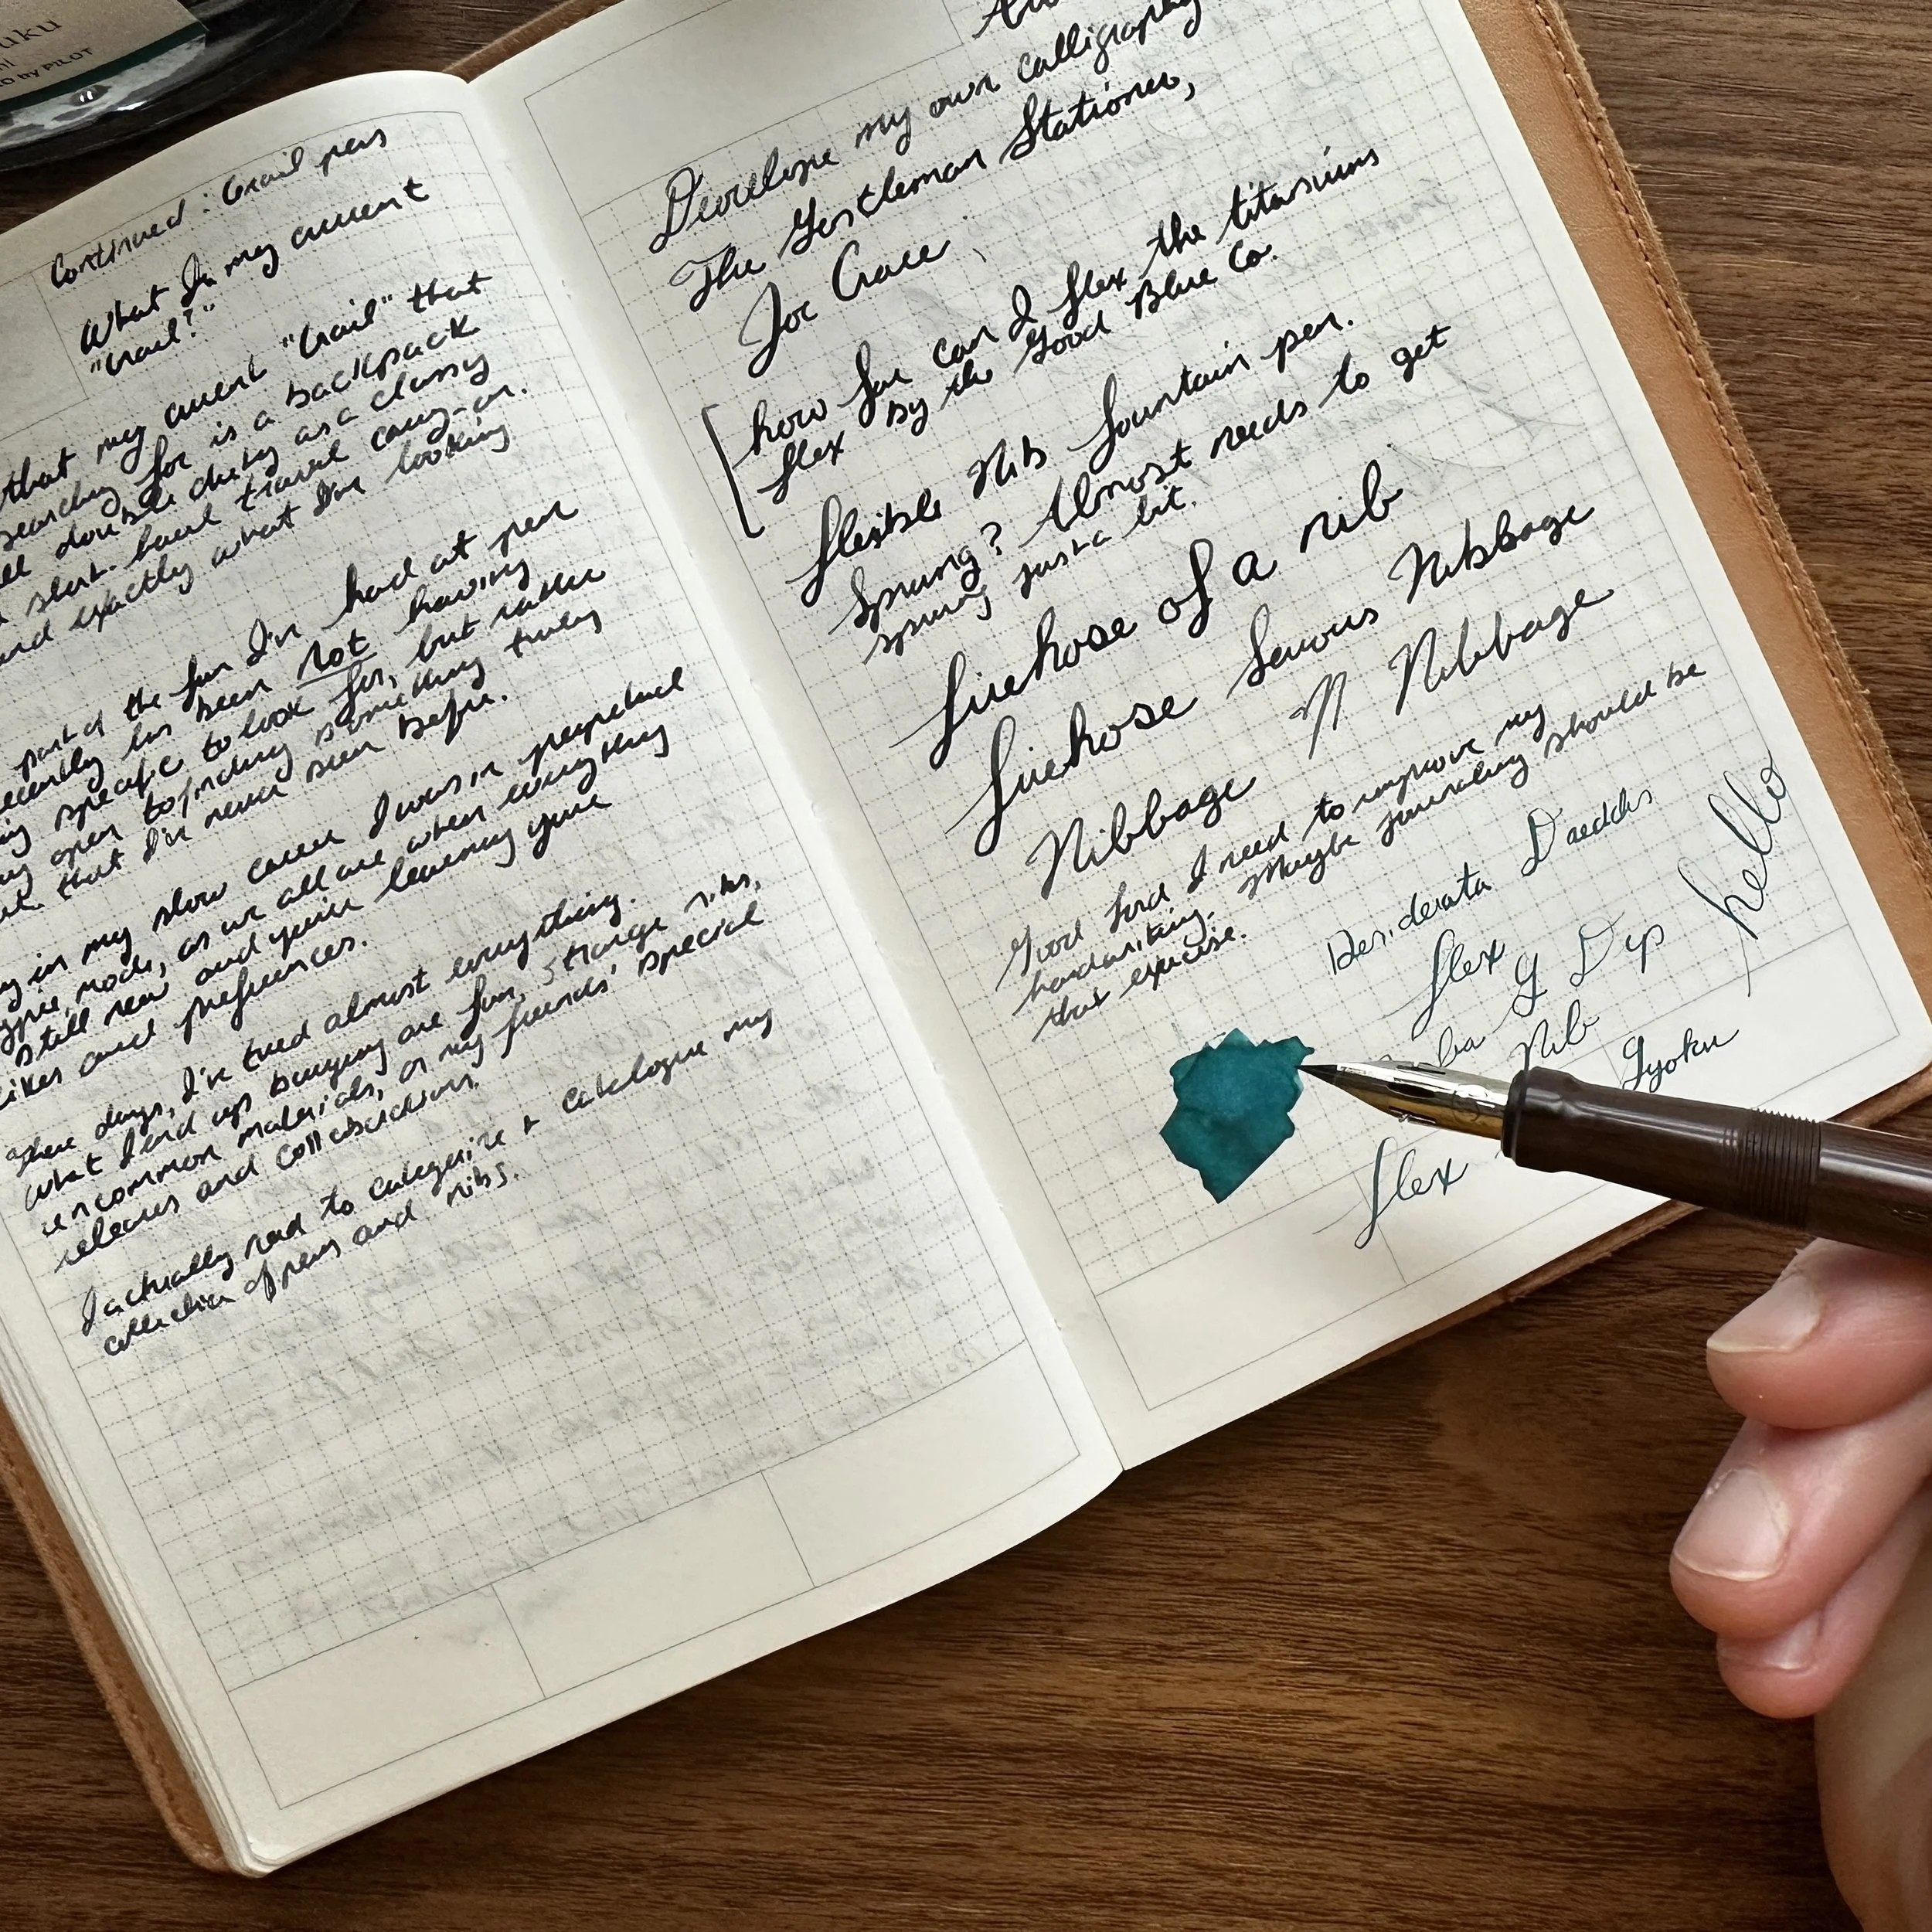 uku
by PILOT
Continued: Grail pens
What Is my current
"Grail?"
that my current "Grail" that
searching for is a backpack
double duty as a classy
travel carry-on.
and exactly what I'm looking
part of the fun I've had at pen
recently has been not having
specific to look for, but rather
open to finding something truly
that I've never seen before.
in my slow career I was in perpetual
mode, as we all are when everything
still new and you're learning your
likes and preferences.
these days, I've tried almost everything.
What I end up buying are fun, strange nibs,
uncommon materials, or my friends' special
releases and collaborations.
I actually need to categorize + catalogue my
collection of pens and nibs.
Develope my own calligraphy
The Gentleman Stationer,
Joe Crace
how far can I flex the titanium
flex by the Good Blue Co.
flexible Nib fountain pen.
Sprung? Almost needs to get
sprung just a bit.
firehose of a nib
firehose Serious Nibbage
Nibbage N Nibbage
Good lord I need to improve my
handwriting. Maybe journaling should be
that exercise.
Desiderata Daedalus
flex
hello
ba G Dip
Nib
Gyoku
flex